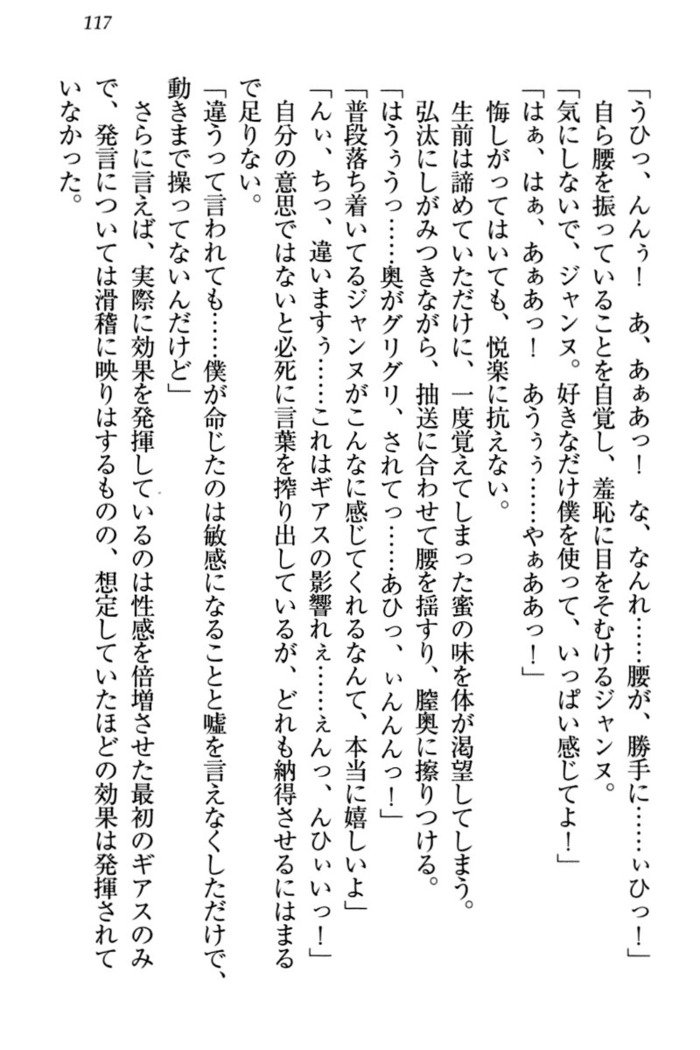 117
「うひっ、んんぅ！　あ、あぁあっ！　な、なんれ……腰が、勝手に……ぃひっ！」
自ら腰を振っていることを自覚し、羞恥に目をそむけるジャンヌ。
「気にしないで、ジャンヌ。好きなだけ僕を使って、いっぱい感じてよ！」
「はぁ、はぁ、あぁあっ！　あうぅぅ……やぁああっ！」
悔しがってはいても、悦楽に抗えない。
生前は諦めていただけに、一度覚えてしまった蜜の味を体が渇望してしまう。
弘汰にしがみつきながら、抽送に合わせて腰を揺すり、膣奥に擦りつける。
「はうぅうっ……奥がグリグリ、されてっ……あひっ、ぃんんんっ！」
「普段落ち着いてるジャンヌがこんなに感じてくれるなんて、本当に嬉しいよ」
「んぃ、ちっ、違いますぅ……これはギアスの影響れぇ……ぇんっ、んひぃいっ！」
自分の意思ではないと必死に言葉を搾り出しているが、どれも納得させるにはまる
で足りない。
「違うって言われても……僕が命じたのは敏感になることと嘘を言えなくしただけで、
動きまで操ってないんだけど」
さらに言えば、実際に効果を発揮しているのは性感を倍増させた最初のギアスのみ
で、発言については滑稽に映りはするものの、想定していたほどの効果は発揮されて
いなかった。